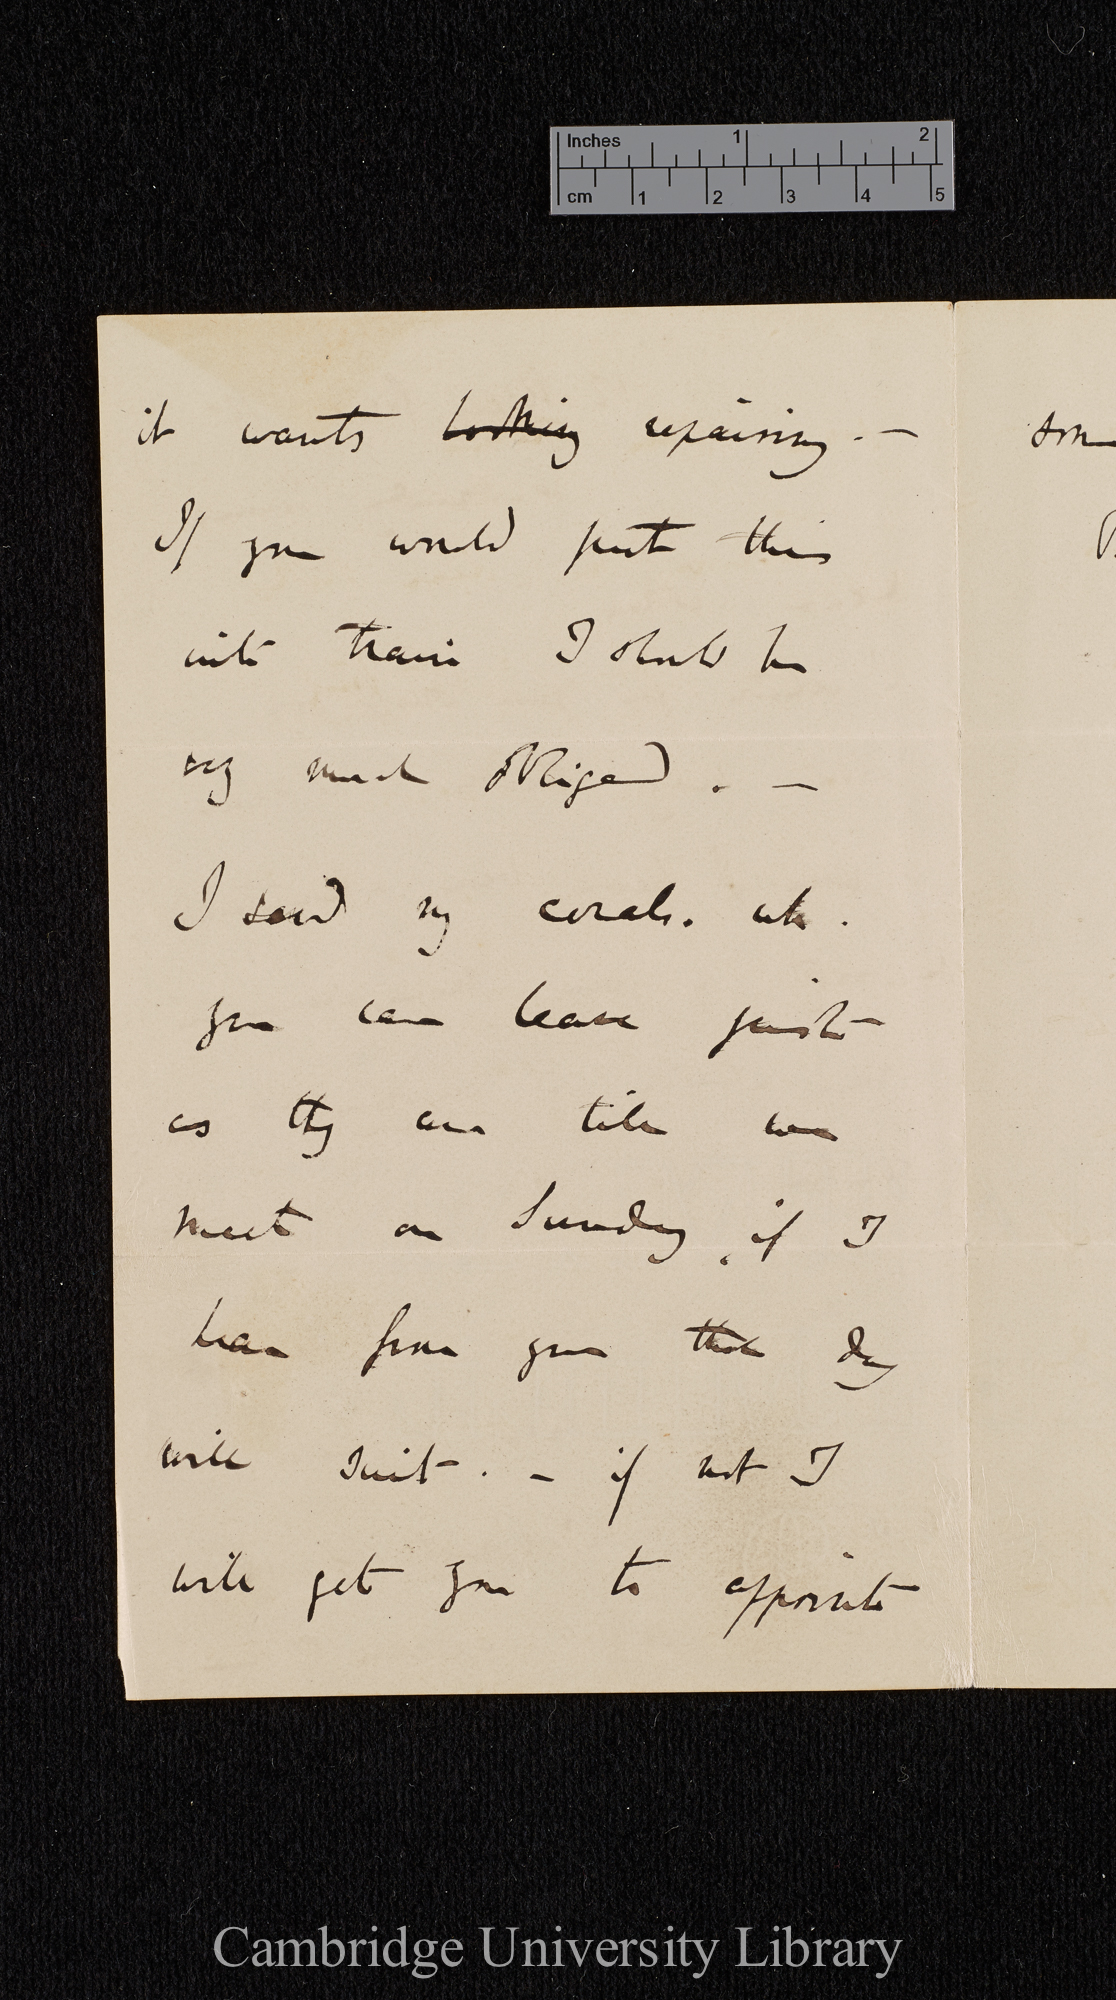 Inches 1 2
cm 1 2 3 4 5
it wants looking repairing. —
If you would put this
into train I should be
very much obliged. —
I send my corals.
you can leave just
as they are till we
meet on Sunday, if I
hear from you that day
will suit. — if not I
will get you to appoint
Cambridge University Library